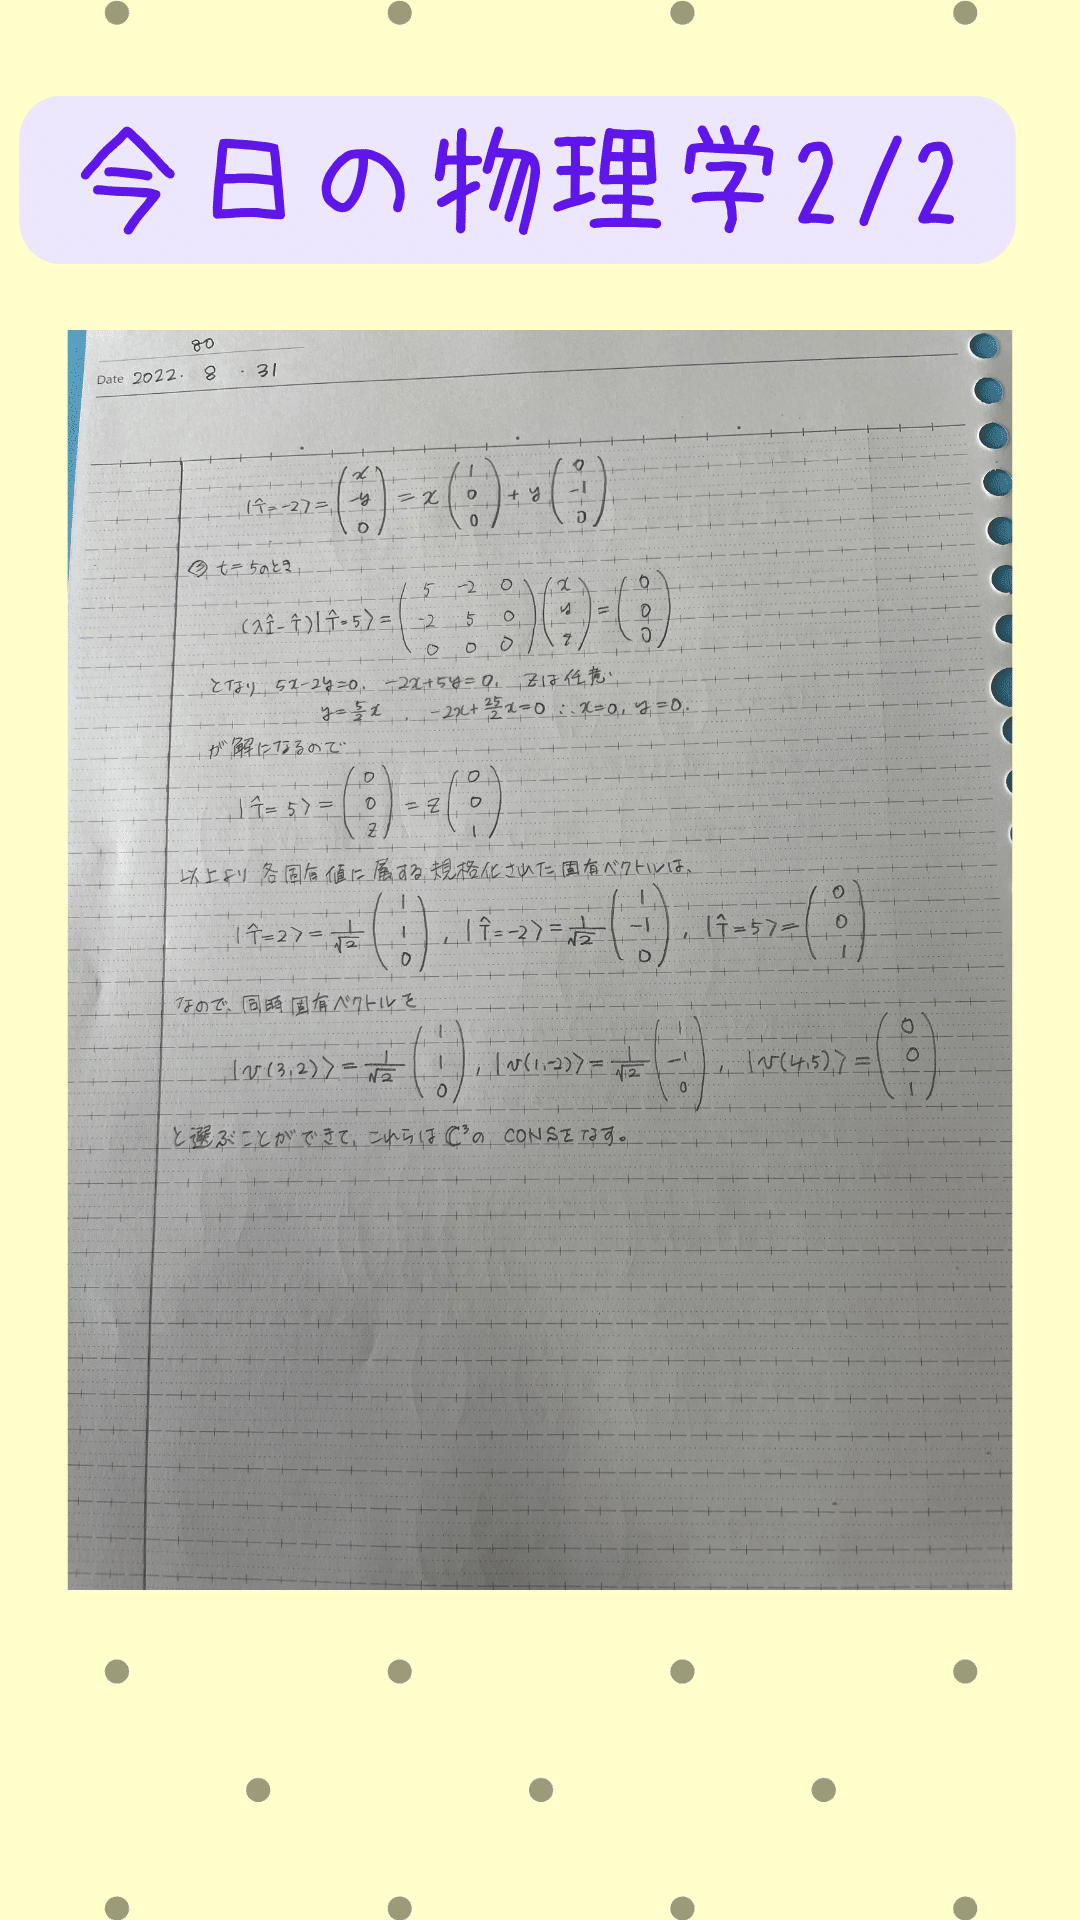 今日の物理学2/2
80
Date 2022. 8 . 31
|T̂=-2⟩ = (x -y 0) = x (1 0 0) + y (0 -1 0)
③ t=5のとき
(λÎ-T̂)|T̂=5⟩ = (5 -2 0 / -2 5 0 / 0 0 0) (x y z) = (0 0 0)
となり 5x-2y=0, -2x+5y=0, zは任意.
y=5/2 x , -2x+25/2 x=0 ∴x=0, y=0.
が解になるので
|T̂=5⟩ = (0 0 z) = z (0 0 1)
以上より 各固有値に属する規格化された固有ベクトルは、
|T̂=2⟩ = 1/√2 (1 1 0) , |T̂=-2⟩ = 1/√2 (1 -1 0) , |T̂=5⟩ = (0 0 1)
なので、同時固有ベクトルを
|v(3,2)⟩ = 1/√2 (1 1 0) , |v(1,-2)⟩ = 1/√2 (1 -1 0) , |v(4,5)⟩ = (0 0 1)
と選ぶことができて、これらはℂ³の CONSをなす。